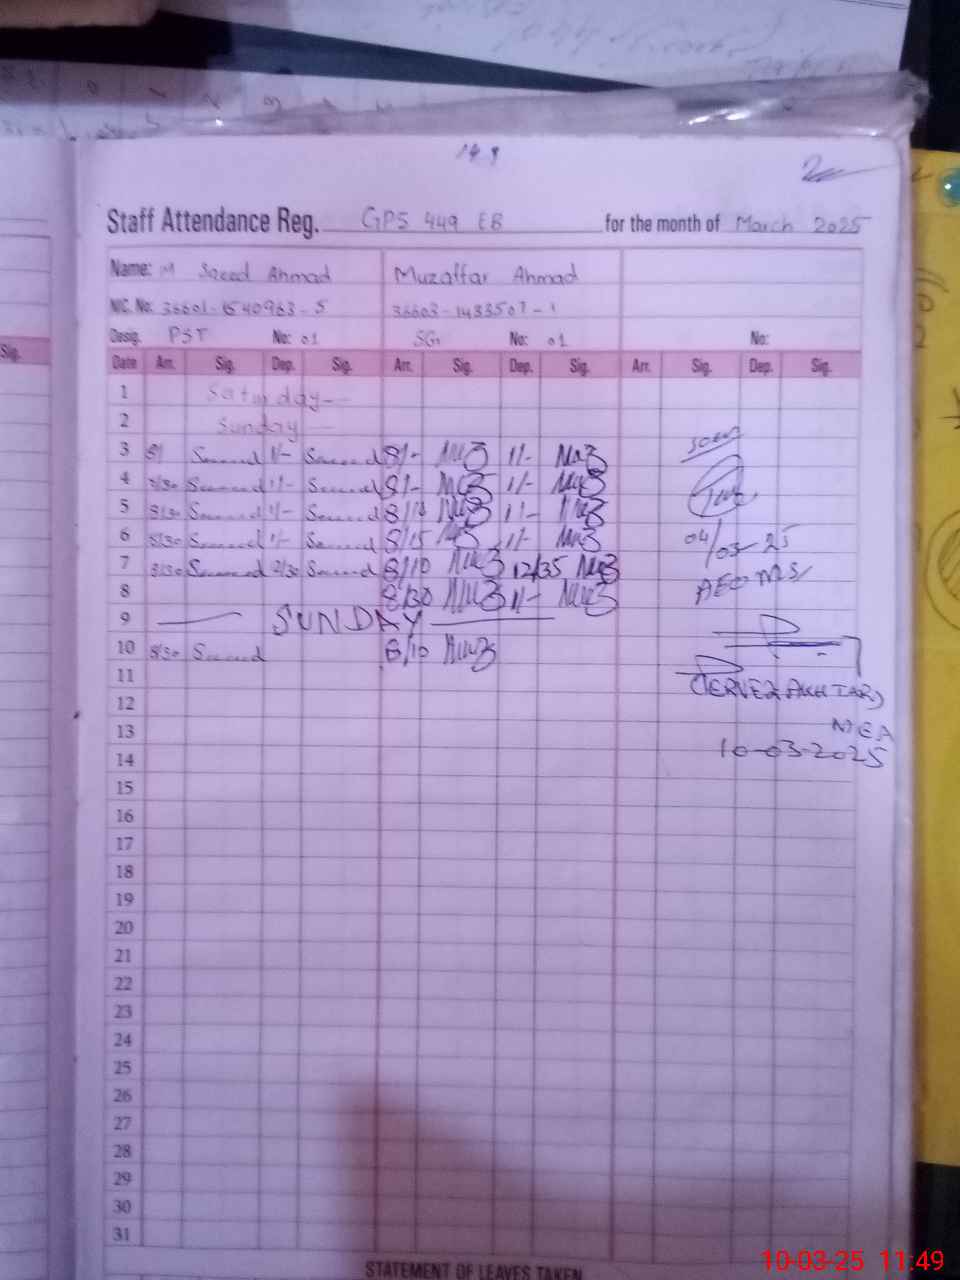 2
Staff Attendance Reg. GPS 449 EB for the month of March 2025
Name: M Saeed Ahmad Muzaffar Ahmad
NIC. No. 36601-1540963-5 36603-1433507-1
Desig. PST No: 01 SG No: 01 No:
Date Arr. Sig. Dep. Sig. Arr. Sig. Dep. Sig. Arr. Sig. Dep. Sig.
Sig.
1 Saturday
2 Sunday
3 8/ Saeed 1/- Saeed 8/- Muz 1/- Muz
seen
4 8/30 Saeed 1/- Saeed 8/- Muz 1/- Muz
5 8/30 Saeed 1/- Saeed 8/10 Muz 1/- Muz
6 8/30 Saeed 1/- Saeed 8/15 Muz 1/- Muz
04/03-25
7 8/30 Saeed 12/30 Saeed 8/10 Muz 12/35 Muz
AEO MS
8 8/30 Muz 1/- Muz
9 SUNDAY
10 8/30 Saeed 8/10 Muz
11
(PERVEZ AKHTAR)
12
13
MEA
10-03-2025
14
15
16
17
18
19
20
21
22
23
24
25
26
27
28
29
30
31
STATEMENT OF LEAVES TAKEN
10-03-25 11:49